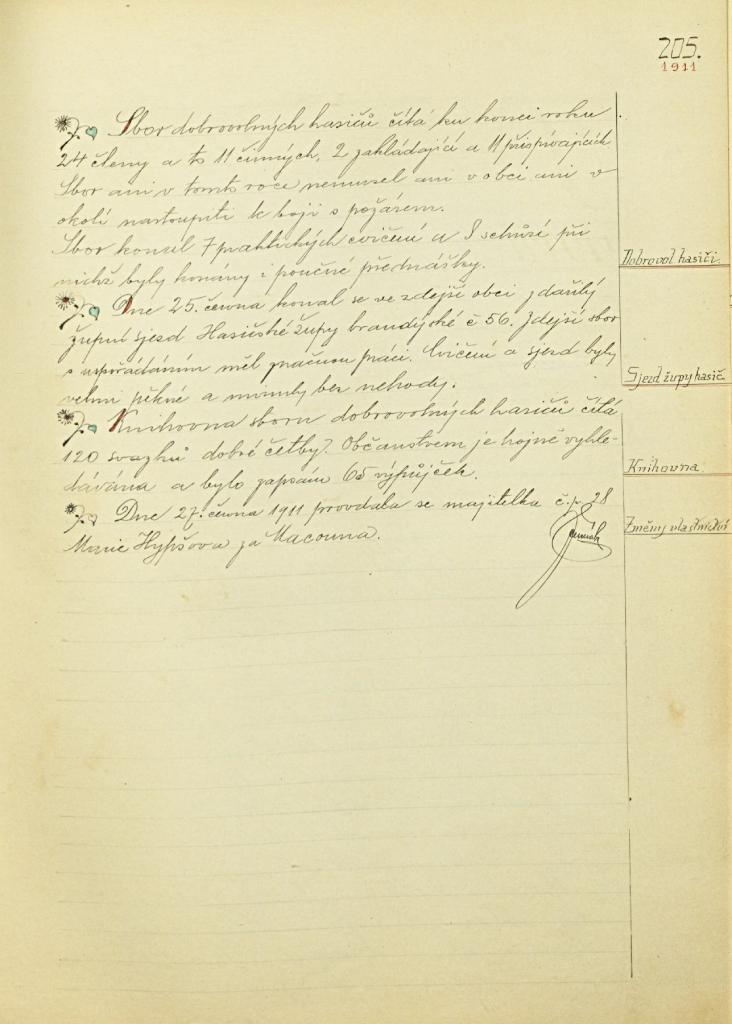 205.
1911
Sbor dobrovolných hasičů čítá ku konci roku
24 členy a to 11 činných, 2 zakládající a 11 přispívajících
Sbor ani v tomto roce nemusel ani v obci ani v
okolí nastoupiti k boji s požárem.
Sbor konal 7 praktických cvičení a 8 schůzí při
nichž byly konány i poučné přednášky.
Dobrovol. hasiči.
Dne 25. června konal se ve zdejší obci zdařilý
župní sjezd Hasičské župy brandýské č 56. Zdejší sbor
s uspořádáním měl značnou práci. Cvičení a sjezd byly
velmi pěkné a minuly bez nehody.
Sjezd župy hasič.
Knihovna sboru dobrovolných hasičů čítá
120 svazků dobré četby. Občanstvem je hojně vyhle-
dávána a bylo zapsáno 65 výpůjček.
Knihovna.
Dne 27. června 1911 provdala se majitelka č.p. 28
Marie Hypšova za Macouna.
Změny vlastnictví